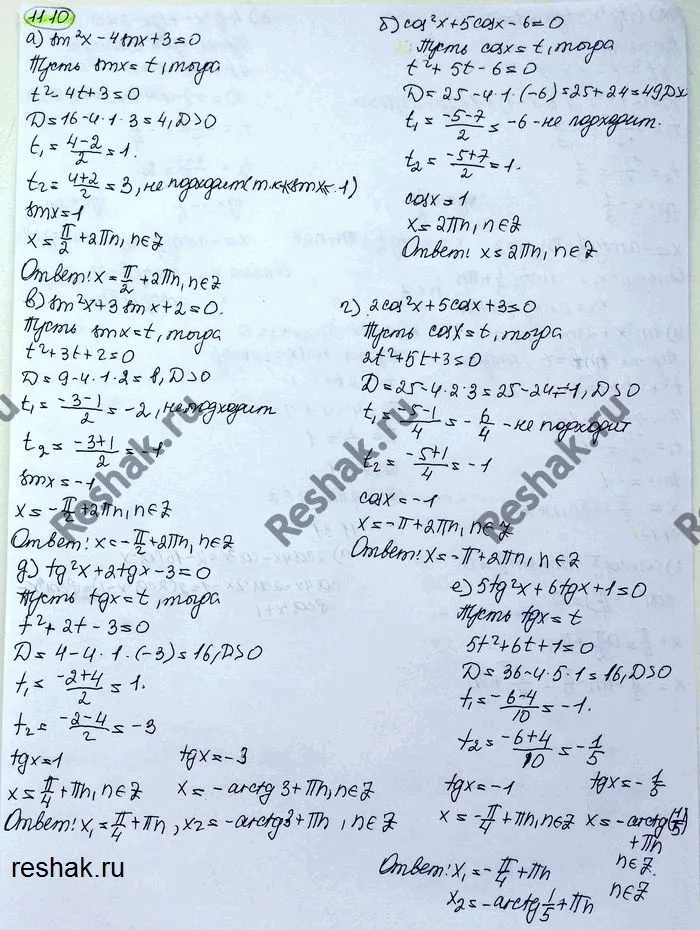 11.10
а) sin²x - 4sinx + 3 = 0
Пусть sinx = t, тогда
t² - 4t + 3 = 0
D = 16 - 4·1·3 = 4, D>0
t₁ = (4-2)/2 = 1.
t₂ = (4+2)/2 = 3, не подходит
sinx = 1
x = π/2 + 2πn, n∈Z
Ответ: x = π/2 + 2πn, n∈Z
б) cos²x + 5cosx - 6 = 0
Пусть cosx = t, тогда
t² + 5t - 6 = 0
D = 25 - 4·1·(-6) = 25 + 24 = 49
t₁ = (-5-7)/2 = -6 - не подходит.
t₂ = (-5+7)/2 = 1.
cosx = 1
x = 2πn, n∈Z
Ответ: x = 2πn, n∈Z
в) sin²x + 3sinx + 2 = 0.
Пусть sinx = t, тогда
t² + 3t + 2 = 0
D = 9 - 4·1·2 = 1, D>0
t₁ = (-3-1)/2 = -2, не подходит
t₂ = (-3+1)/2 = -1
sinx = -1
x = -π/2 + 2πn, n∈Z
Ответ: x = -π/2 + 2πn, n∈Z
г) 2cos²x + 5cosx + 3 = 0
Пусть cosx = t, тогда
2t² + 5t + 3 = 0
D = 25 - 4·2·3 = 25 - 24 = 1, D>0
t₁ = (-5-1)/4 = -6/4 - не подходит
t₂ = (-5+1)/4 = -1
cosx = -1
x = -π + 2πn, n∈Z
Ответ: x = -π + 2πn, n∈Z
д) tg²x + 2tgx - 3 = 0
Пусть tgx = t, тогда
t² + 2t - 3 = 0
D = 4 - 4·1·(-3) = 16, D>0
t₁ = (-2+4)/2 = 1.
t₂ = (-2-4)/2 = -3
tgx = 1 tgx = -3
x = π/4 + πn, n∈Z x = -arctg3 + πn, n∈Z
Ответ: x₁ = π/4 + πn, x₂ = -arctg3 + πn, n∈Z
е) 5tg²x + 6tgx + 1 = 0
Пусть tgx = t
5t² + 6t + 1 = 0
D = 36 - 4·5·1 = 16, D>0
t₁ = (-6-4)/10 = -1.
t₂ = (-6+4)/10 = -1/5
tgx = -1 tgx = -1/5
x = -π/4 + πn, n∈Z x = -arctg(1/5)
+ πn
n∈Z.
Ответ: x₁ = -π/4 + πn
n∈Z
x₂ = -arctg 1/5 + πn
Reshak.ru
Reshak.ru
Reshak.ru
Reshak.ru
reshak.ru